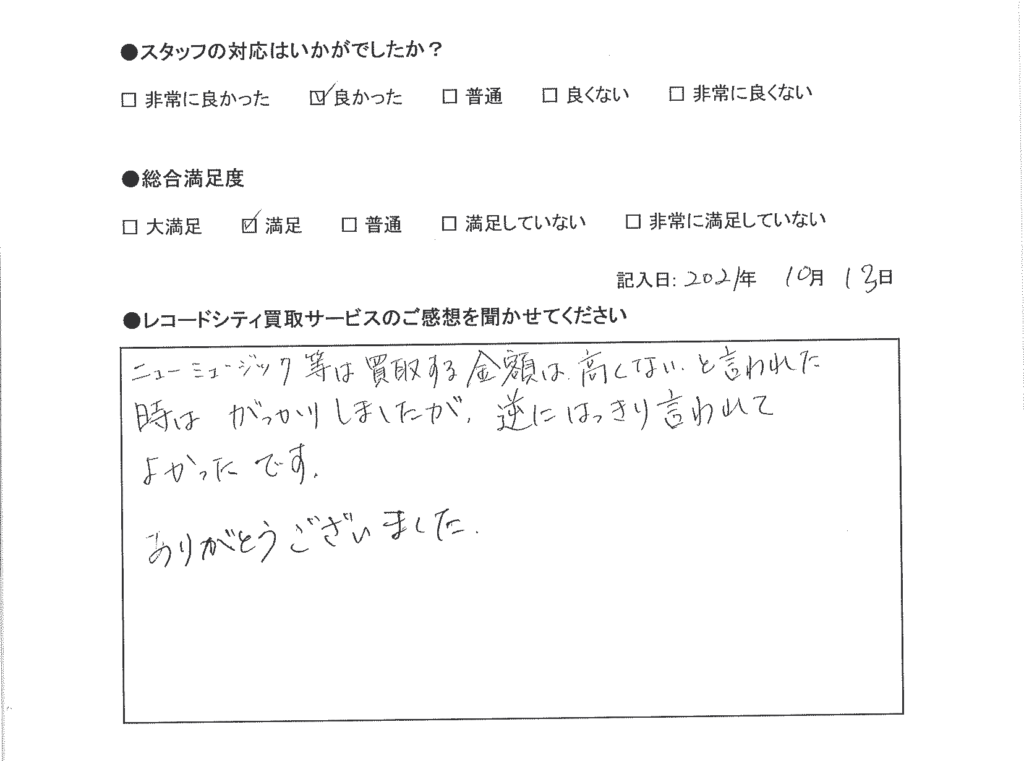 ●スタッフの対応はいかがでしたか？
□ 非常に良かった ☑ 良かった □ 普通 □ 良くない □ 非常に良くない
●総合満足度
□ 大満足 ☑ 満足 □ 普通 □ 満足していない □ 非常に満足していない
記入日: 2021年 10月 13日
●レコードシティ買取サービスのご感想を聞かせてください
ニューミュージック等は買取する金額は、高くない、と言われた
時は がっかりしましたが、逆にはっきり言われて
よかったです。
ありがとうございました。